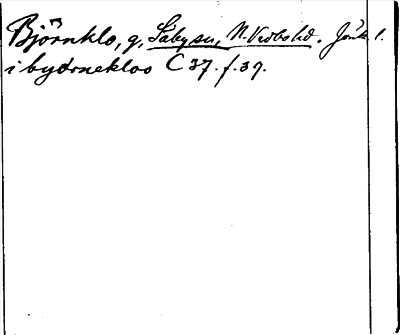 Björnklo, g, Säby sn, N. Vedbo hd. Jönk. l.
i bydrnekloo C 37. f. 39.